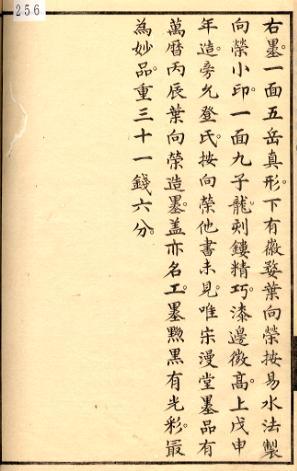 256
右墨。一面五岳真形。下有徽婺葉向榮按易水法製
向榮小印。一面九子龍。刻鏤精巧。漆邊微高。上戊申
年造。旁允登氏。按向榮他書未見。唯宋漫堂墨品有
萬曆丙辰葉向榮造墨。盖亦名工。墨黝黑有光彩。最
為妙品。重三十一錢六分。